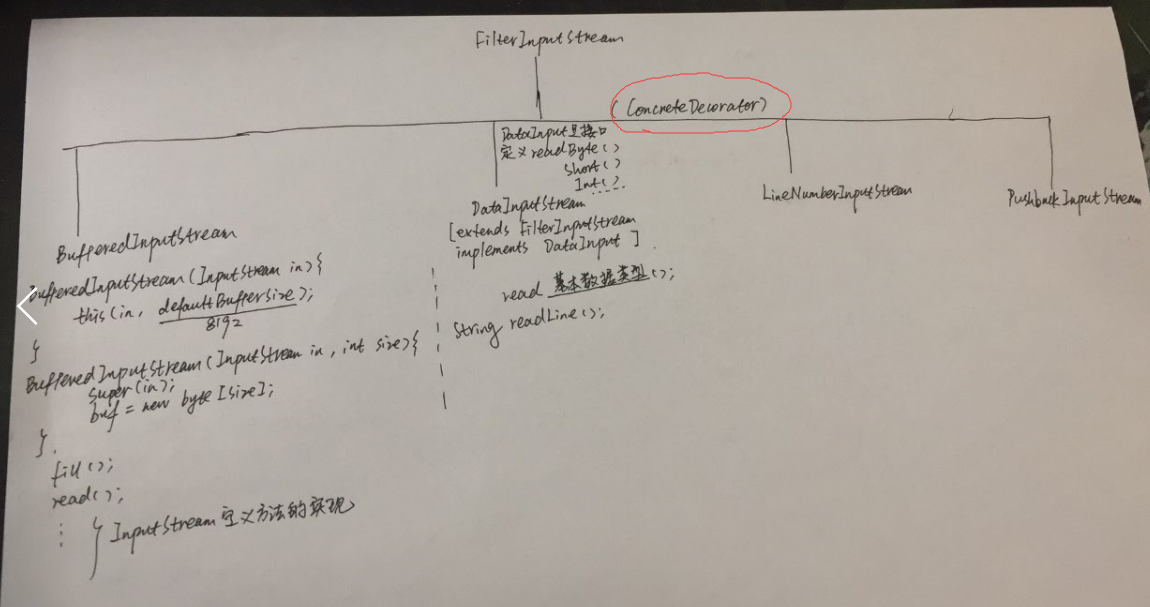 FilterInputStream
(ConcreteDecorator)
DataInput是接口
定义readByte()
short()
Int()
DataInputStream
[extends FilterInputStream
implements DataInput ]
read 基本数据类型();
String readLine();
LineNumberInputStream
PushbackInputStream
BufferedInputStream
BufferedInputStream(InputStream in){
this(in, defaultBufferSize);
8192
}
BufferedInputStream(InputStream in, int size){
super(in);
buf = new byte[size];
}
fill();
read();
InputStream定义方法的实现